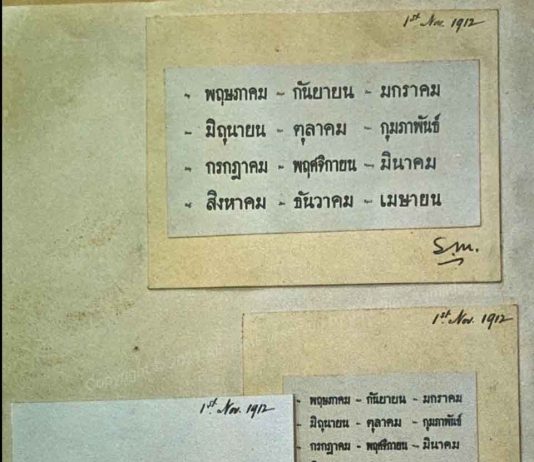 1st Nov. 1912
- พฤษภาคม - กันยายน - มกราคม
- มิถุนายน - ตุลาคม - กุมภาพันธ์
- กรกฎาคม - พฤศจิกายน - มีนาคม
- สิงหาคม - ธันวาคม - เมษายน
S.M.
1st Nov. 1912
- พฤษภาคม - กันยายน - มกราคม
- มิถุนายน - ตุลาคม - กุมภาพันธ์
- กรกฎาคม - พฤศจิกายน - มีนาคม
1st Nov. 1912